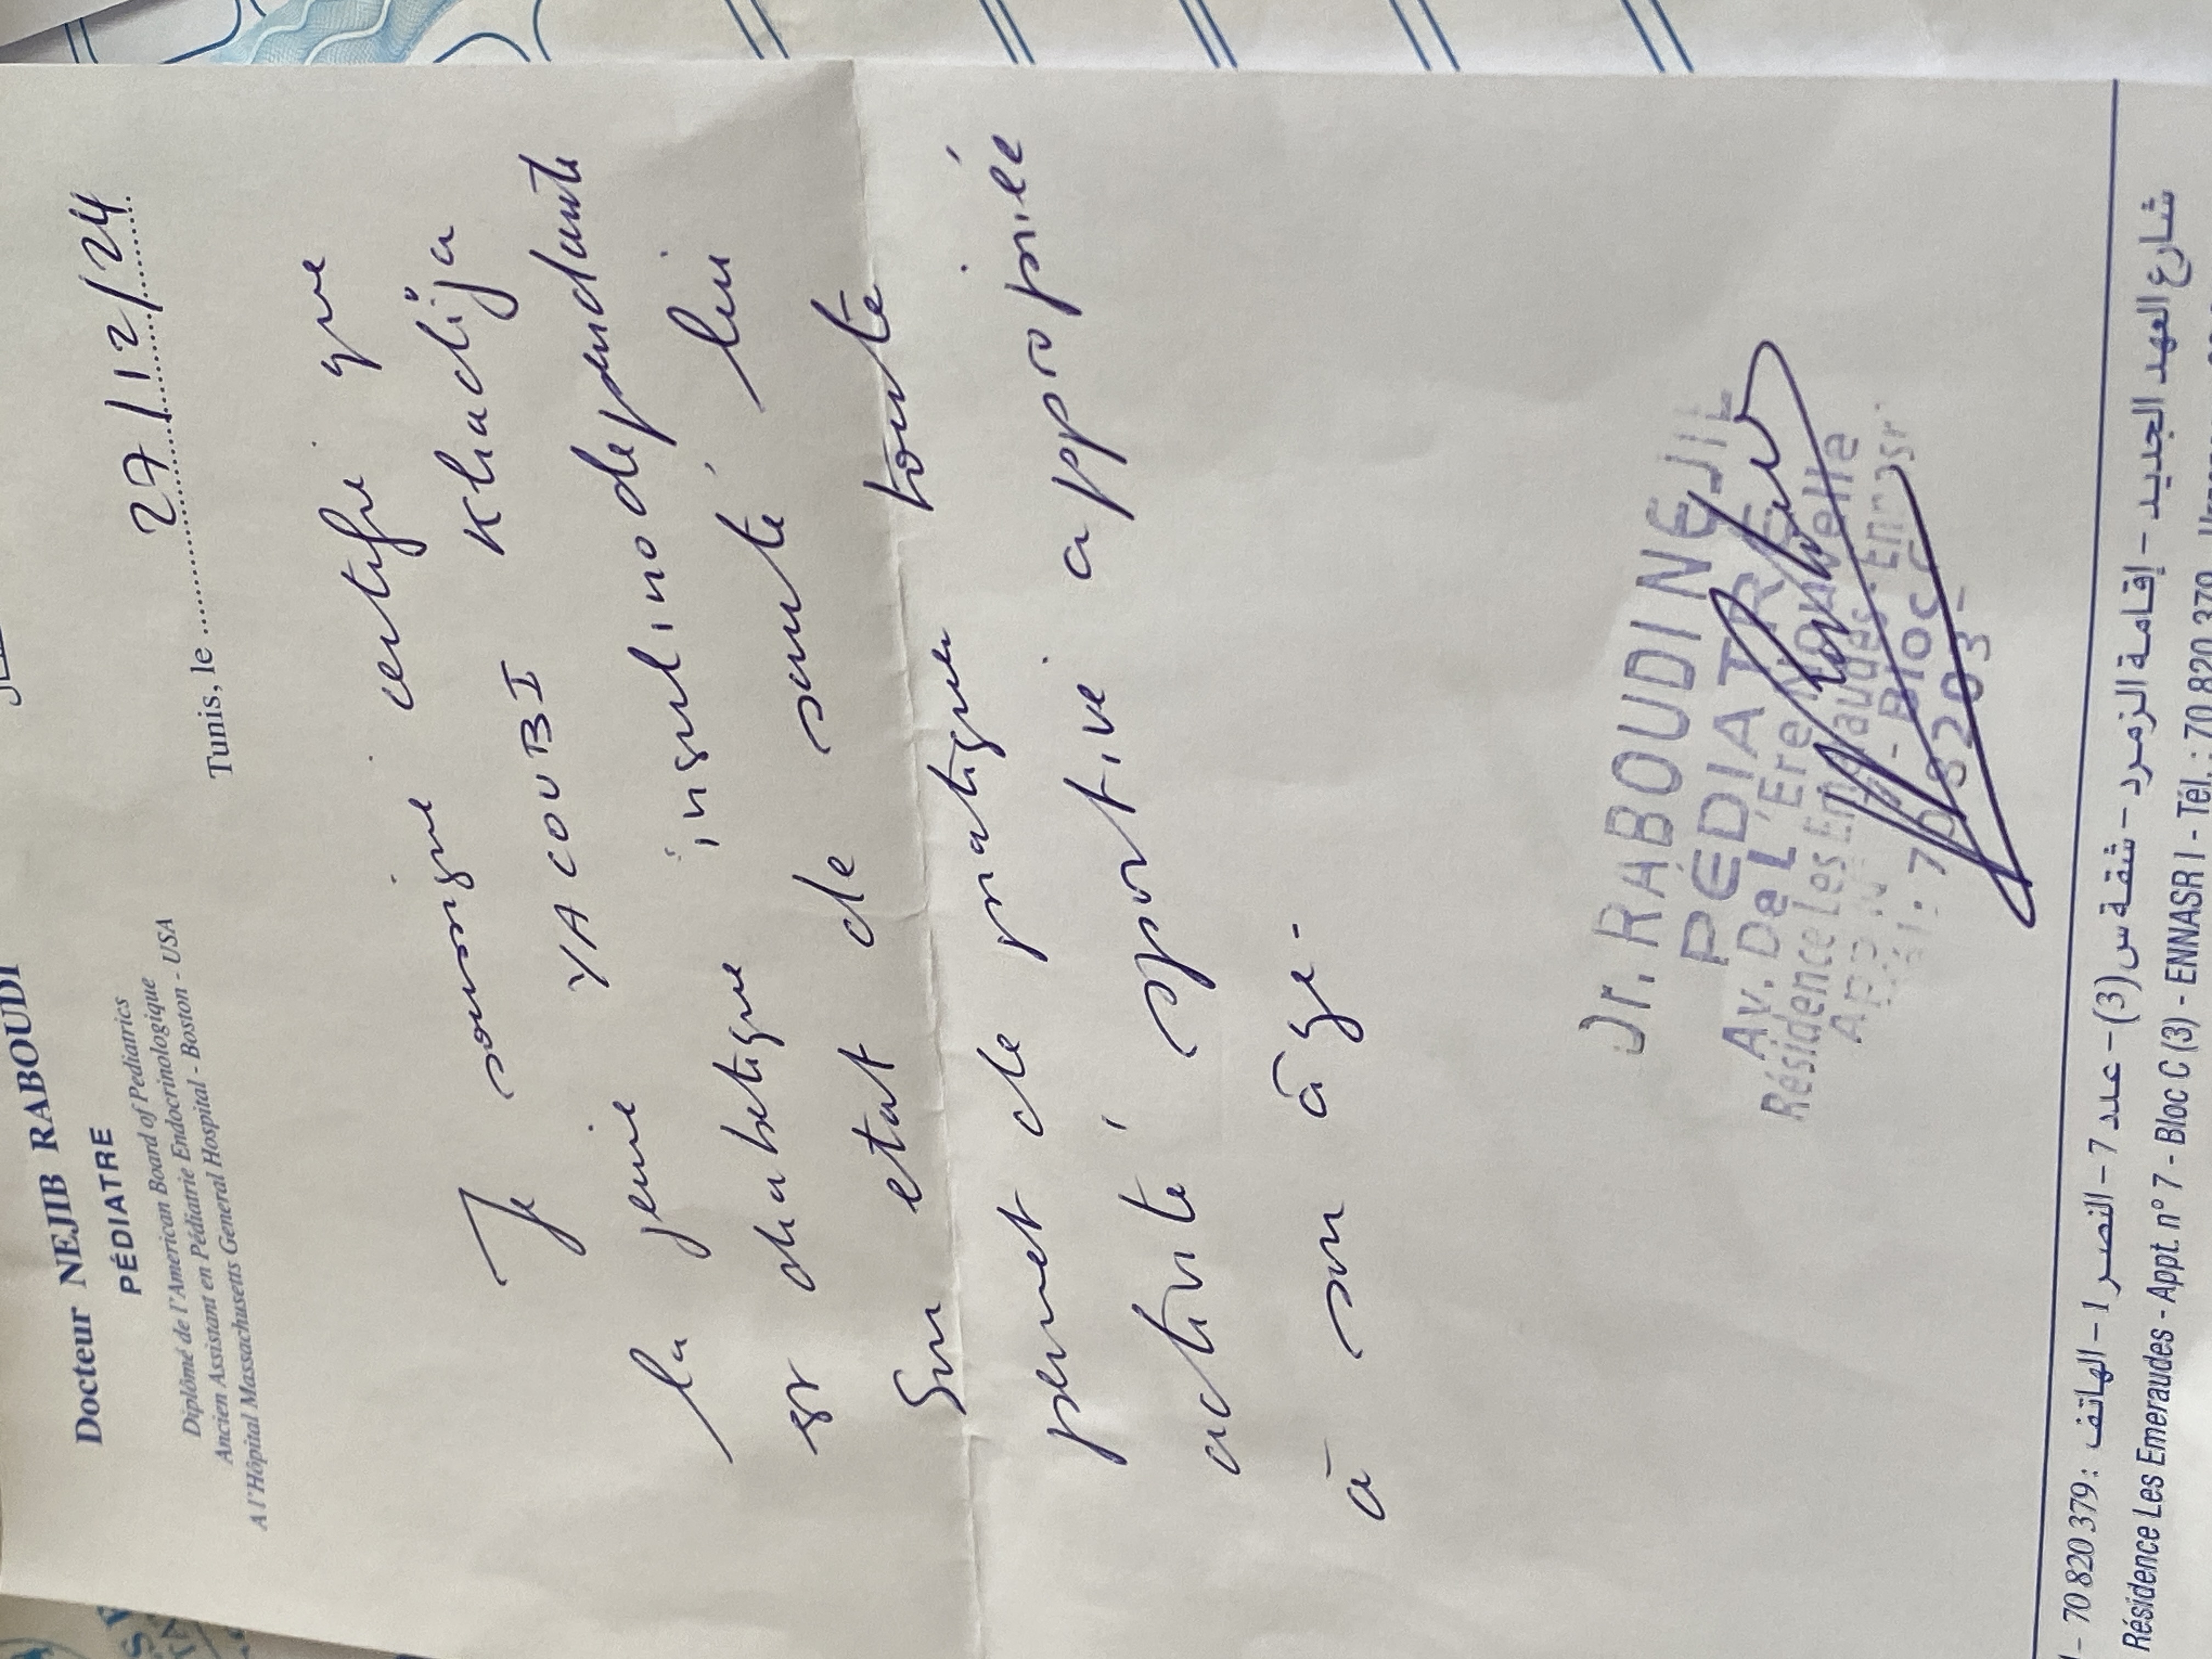 Docteur NEJIB RABOUDI
PÉDIATRE
Diplômé de l'American Board of Pediatrics
Ancien Assistant en Pédiatrie Endocrinologique
A l'Hôpital Massachusetts General Hospital - Boston - USA
Tunis, le 27/12/24
Je soussigné certifie que
la jeune YACOUBI Khadija
est diabétique insulinodépendante
Son etat de santé lui
permet de pratiquer toute
activité sportive appropriée
à son âge.
Dr. RABOUDI NEJIB
PÉDIATRE
Av. De L'Ere Nouvelle
Résidence Les Emeraudes - Ennasr
Bloc C
شارع العهد الجديد – إقامة الزمرد – شقة س(3) – عدد 7 – النصر 1 – الهاتف : 70 820 379 –
Résidence Les Emeraudes - Appt. n° 7 - Bloc C (3) - ENNASR I - Tél. : 70 820 379